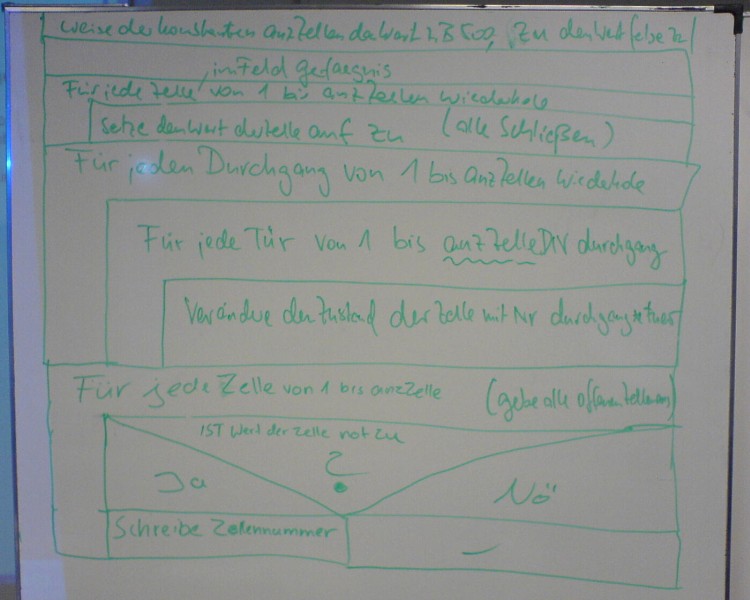 weise der konstanten anzZellen den Wert z.B 500, zu den Wert false zu
im Feld gefaegnis
Für jede Zelle von 1 bis anzZellen wiederhole
setze den Wert der Zelle auf zu (alle Schließen)
Für jeden Durchgang von 1 bis anzZellen wiederhole
Für jede Tür von 1 bis anzZelle DIV durchgang
Verändre den Zustand der Zelle mit Nr durchgang*tuer
Für jede Zelle von 1 bis anzZelle (gebe alle offenen
IST Wert der Zelle not zu
?
Ja Nö
Schreibe Zellennummer –